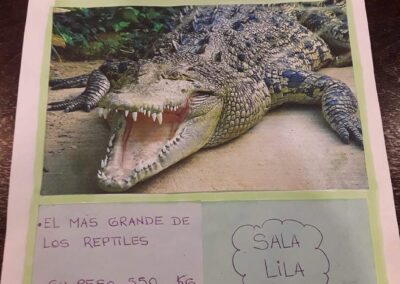 • EL MAS GRANDE DE
LOS REPTILES
SU PESO 550 KG
SALA
LILA